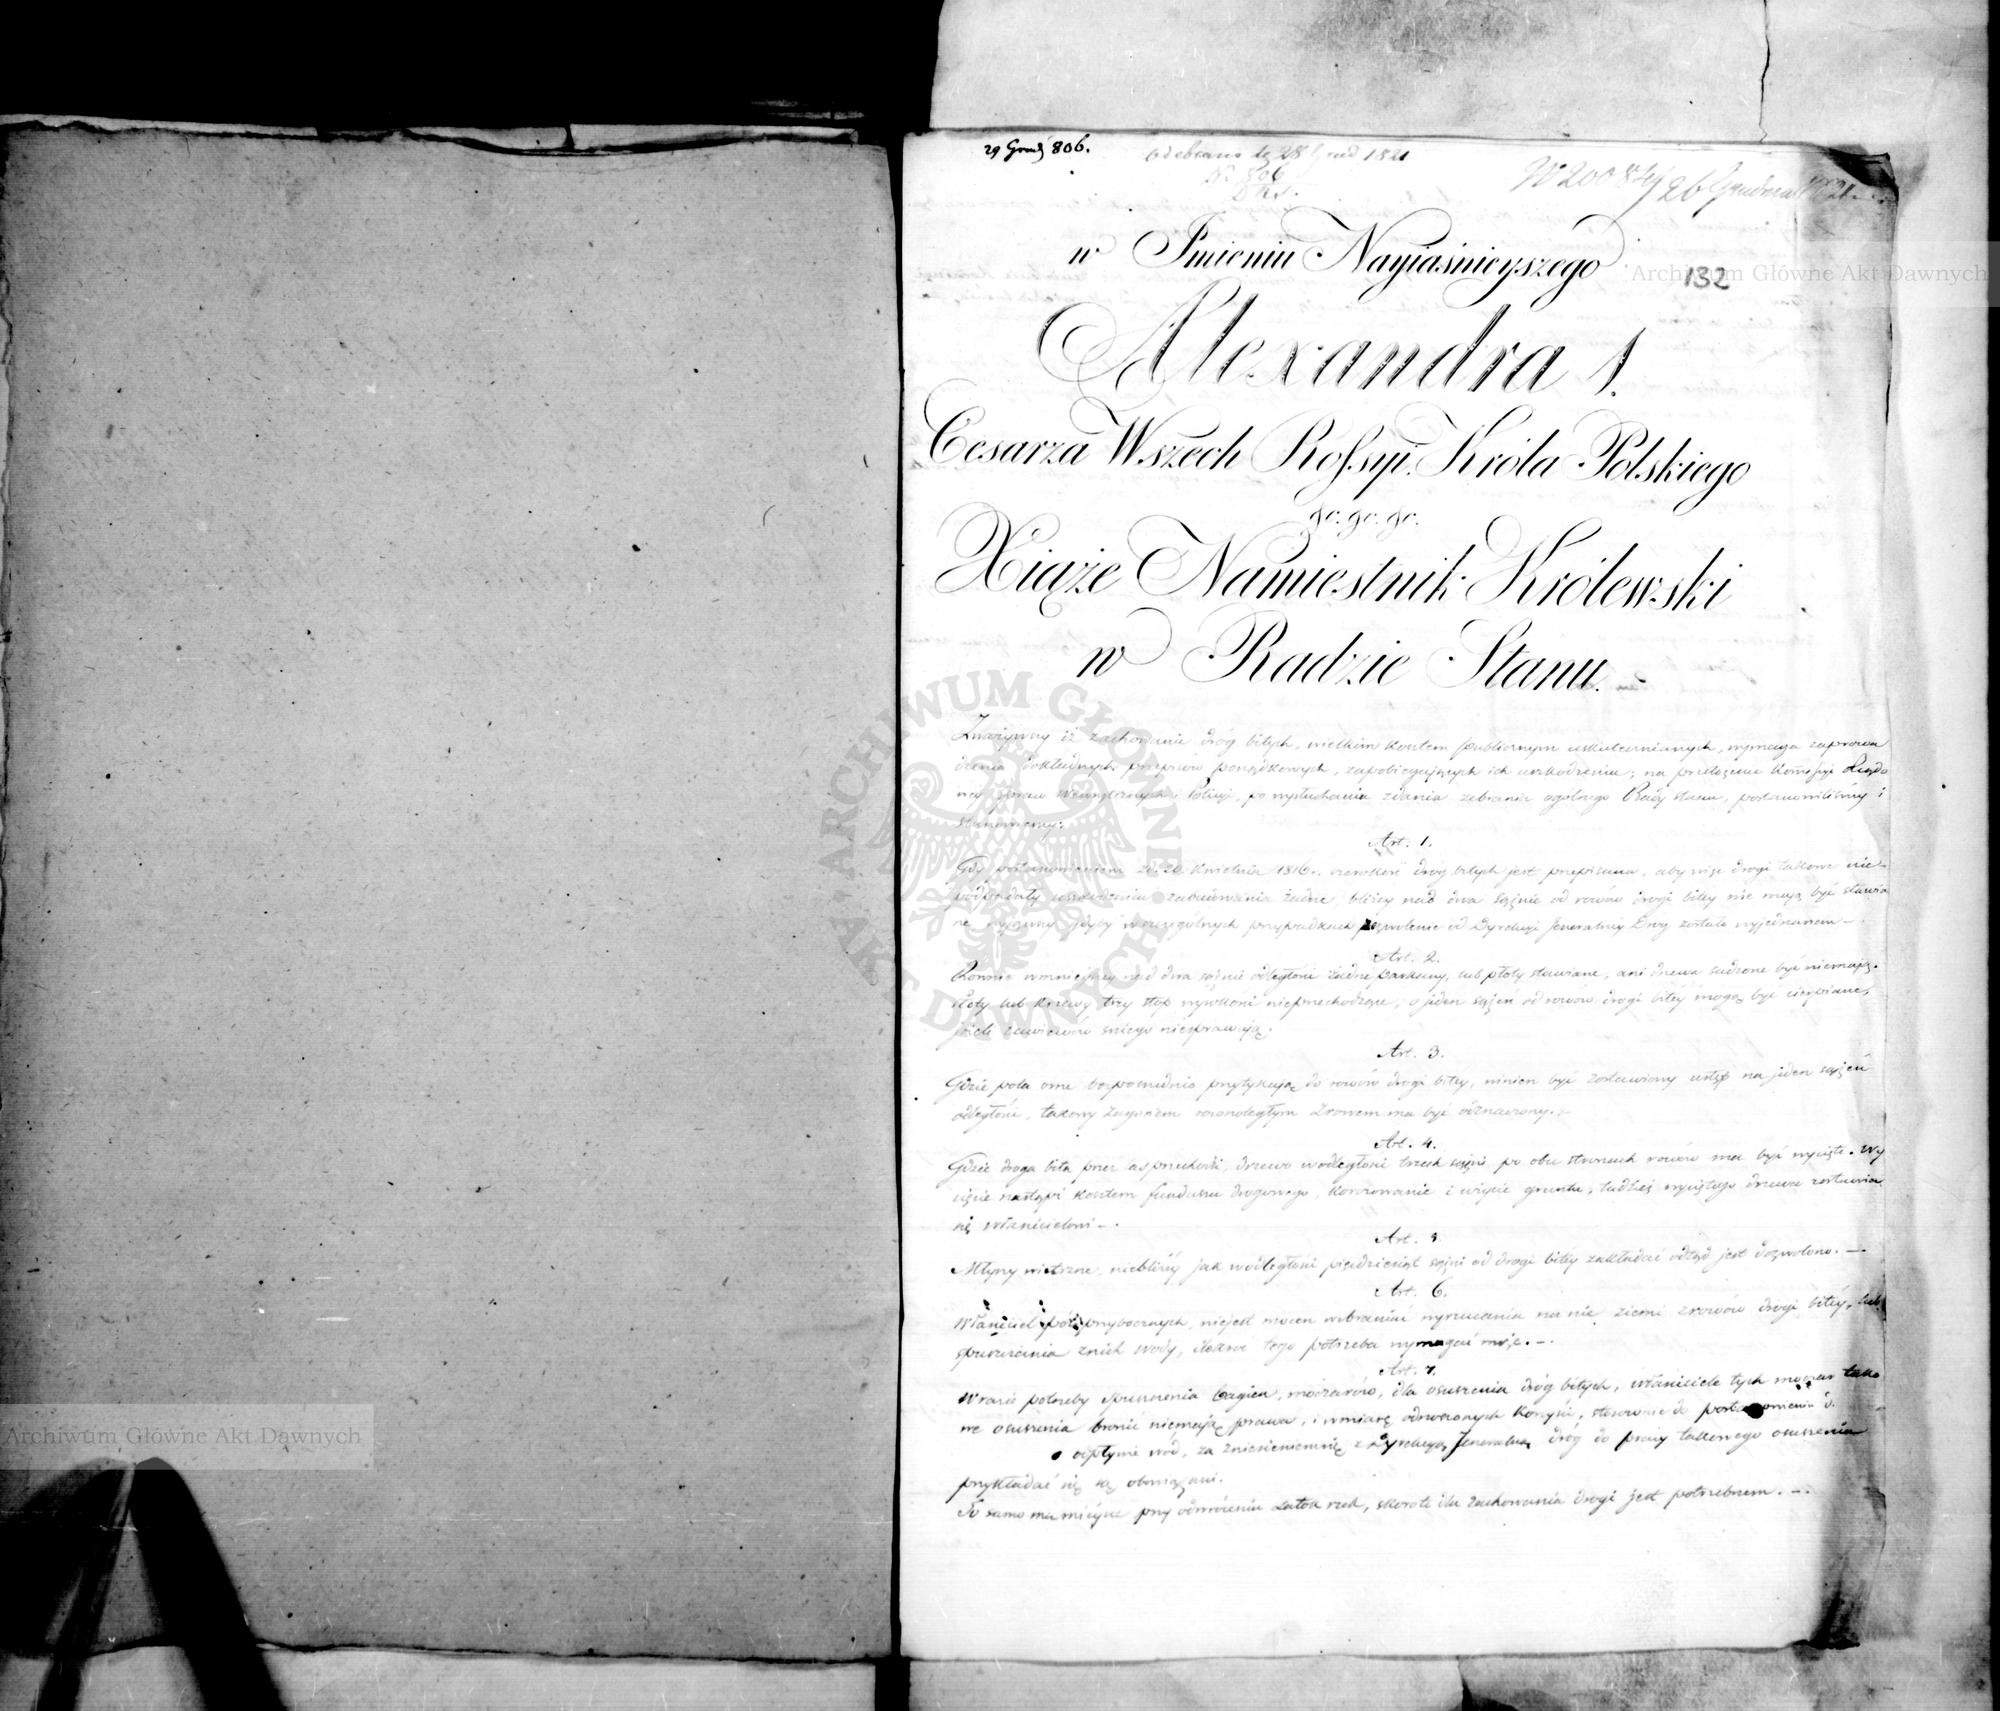 29 Grud 806.
Odebrano dg 28 Grud 1821
N. 806
N 200 26 Grudnia 1821.
132
w Imieniu Nayiaśnieyszego
Alexandra I.
Cesarza Wszech Rossyi. Króla Polskiego
&c. &c. &c.
Xiąże Namiestnik Królewski
w Radzie Stanu.
Zważywszy iż zachowanie dróg bitych, wielkim kosztem publicznym uskutecznianych, wymaga zaprowa
dzenia dokładnych przepisów porządkowych, zapobiegających ich uszkodzeniu; na przełożenie Kommissyi Rządo
wey Spraw Wewnętrznych i Policyi, po wysłuchaniu zdania zebrania ogólnego Rady Stanu, postanowiliśmy i
stanowiemy:
Art. 1.
Gdy postanowieniem zd. 20 Kwietnia 1816 r. szerokość dróg bitych jest przepisana, aby więc drogi takowe nie
podpadały uszkodzeniu zabudowania żadne, bliżey nad dwa sążnie od rowów drogi bitey nie mają być stawia
ne, wyjąwszy gdyby w szczególnych przypadkach pozwolenie od Dyrekcyi Jeneralney Dróg zostało wyjednanem —
Art. 2.
Równie w mnieyszey nad dwa sążnie odległości żadne parkany, lub płoty stawiane, ani drzewa sadzone być niemają.
Płoty lub krzewy trzy stóp wysokości nieprzechodzące, o jeden sążeń od rowów drogi bitéy mogą być cierpiane,
jeżeli zawiewów śniegu niesprawują.
Art. 3.
Gdzie pola orne bezpośrednio przytykają do rowów drogi bitey, winien być zostawiony ustęp na jeden sążeń
odległości, takowy zagonem równoległym z rowem ma być odznaczony. —
Art. 4.
Gdzie droga bita przez las przechodzi, drzewo w odległości trzech sążni po obu stronach rowów ma być wycięte. Wy
cięcie nastąpi kosztem funduszu drogowego, korczowanie i użycie gruntu, tudzież wyciętego drzewa zostawia
się właścicielowi —.
Art. 5
Młyny wietrzne, niebliżéy jak w odległości pięćdziesiąt sążni od drogi bitéy zakładać odtąd jest dozwolono. —
Art. 6.
Właściciel pól przybocznych, niejest mocen wzbraniać wyrzucania na nie ziemi z rowów drogi bitéy, lub
spuszczania z nich wody, ilekroć tego potrzeba wymagać może. —.
Art. 7.
W razie potrzeby spuszczenia bagien, moczarów, dla osuszenia dróg bitych, właściciele tych moczar tako
we osuszenia bronić niemają prawa, i w miarę odnoszonych korzyści, stosownie do postanowienia d.
o odpływie wód, za zniesieniem się z Dyrekcyą Jeneralną dróg do pracy takowego osuszenia
przykładać się są obowiązani.
To samo ma miéysce przy odwróceniu zatok rzek, skoro to dla zachowania drogi jest potrzebnem. —.
Archiwum Główne Akt Dawnych
Archiwum Główne Akt Dawnych
ARCHIWUM GŁÓWNE AKT DAWNYCH